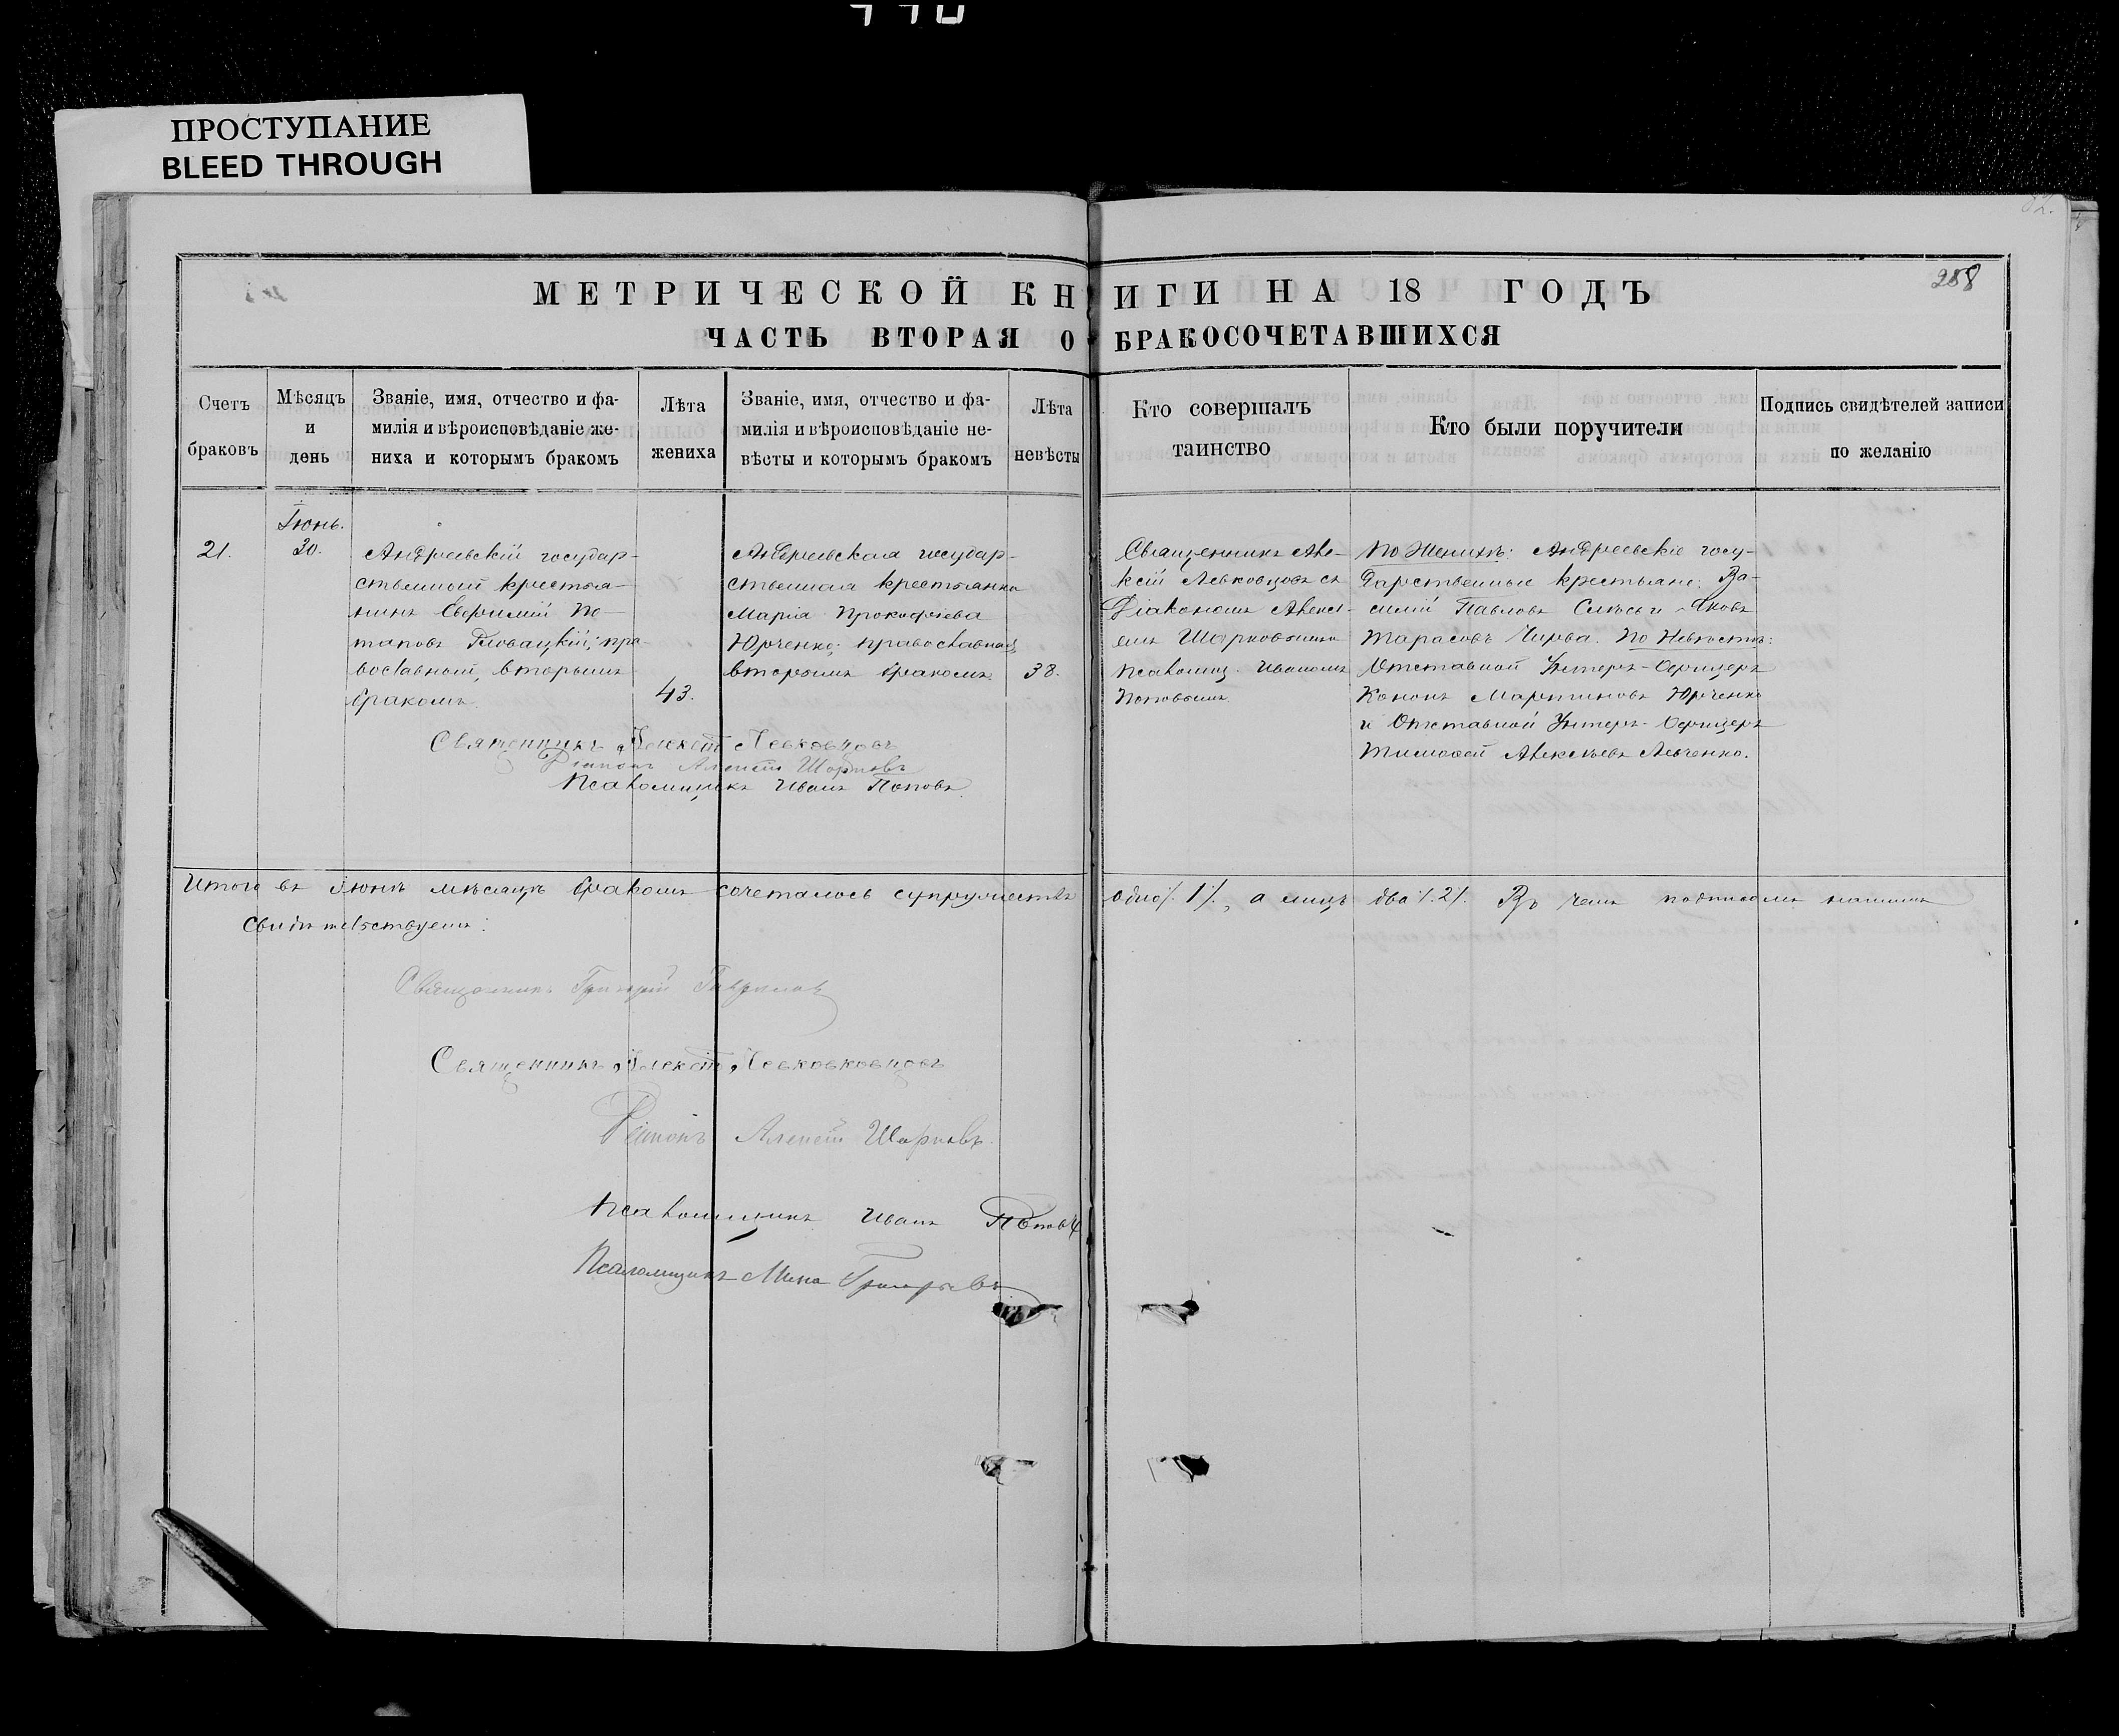 ПРОСТУПАНИЕ
BLEED THROUGH
288
МЕТРИЧЕСКОЙ КНИГИ НА 18 ГОДЪ
ЧАСТЬ ВТОРАЯ О БРАКОСОЧЕТАВШИХСЯ
Счетъ
браковъ
Мѣсяцъ
и
день
Званіе, имя, отчество и фа-
милія и вѣроисповѣданіе же-
ниха и которымъ бракомъ
Лѣта
жениха
Званіе, имя, отчество и фа-
милія и вѣроисповѣданіе не-
вѣсты и которымъ бракомъ
Лѣта
невѣсты
Кто совершалъ
таинство
Кто были поручители
Подпись свидѣтелей записи
по желанію
21.
Іюнь.
30.
Андреевскій государ-
ственный крестья-
нинъ Евфимій По-
таповъ Гловацкій; пра-
вославный, вторымъ
бракомъ.
43.
Андреевская государ-
ственная крестьянка
Марія Прокофіева
Юрченко; православная
вторымъ бракомъ.
38.
Священникъ Але-
ксій Левковцовъ съ
Діакономъ Алексі-
емъ Шорковымъ
псаломщ. Иваномъ
Поповымъ.
По Женихѣ: Андреевскіе госу-
дарственные крестьяне: Ва-
силій Павловъ и Яковъ
Тарасовъ Чирва. По Невѣстѣ:
Отставной Унтеръ-Офицеръ
Кононъ Мартиновъ Юрченко
и Отставной Унтеръ-Офицеръ
Тимофей Алексѣевъ Левченко.
Священникъ Алексій Левковцовъ
Діаконъ Алексій Шорковъ
Псаломщикъ Иванъ Поповъ.
Итого въ Іюнѣ мѣсяцѣ бракомъ сочеталось супружествъ одно /. 1 /., а лицъ два /. 2 /. Въ чемъ подписомъ нашимъ
свидѣтельствуемъ:
Священникъ Григорій Гавриловъ
Священникъ Алексій Левковковцовъ
Діаконъ Алексій Шорковъ.
Псаломщикъ Иванъ Поповъ
Псаломщикъ Мина Григорьевъ